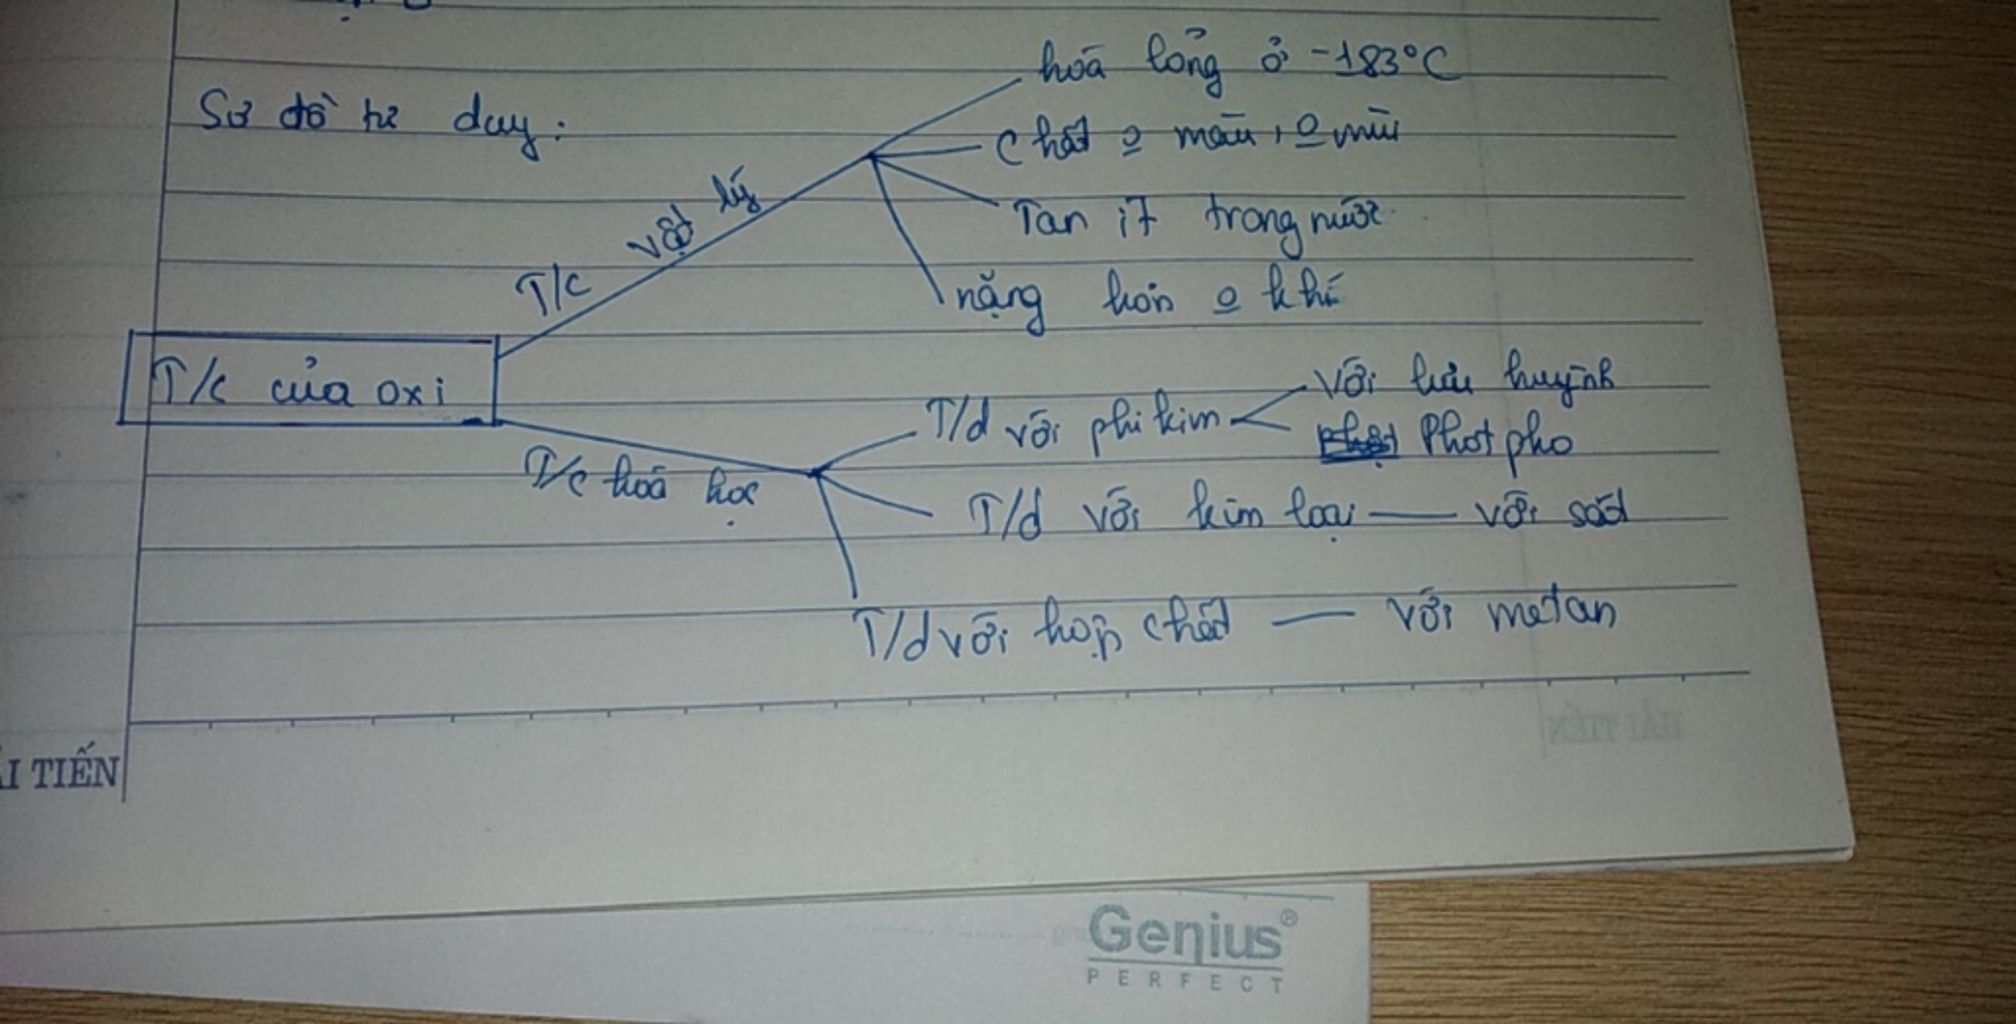 Sơ đồ tư duy:
hoá lỏng ở -183°C
Chất o màu, o mùi
Tan ít trong nước
nặng hơn o khí
T/c vật lý
T/c của oxi
T/c hoá học
T/d với phi kim
với lưu huỳnh
Phot pho
T/d với kim loại — với sắt
T/d với hợp chất — với metan
HẢI TIẾN
ẢI TIẾN
Genius®
PERFECT